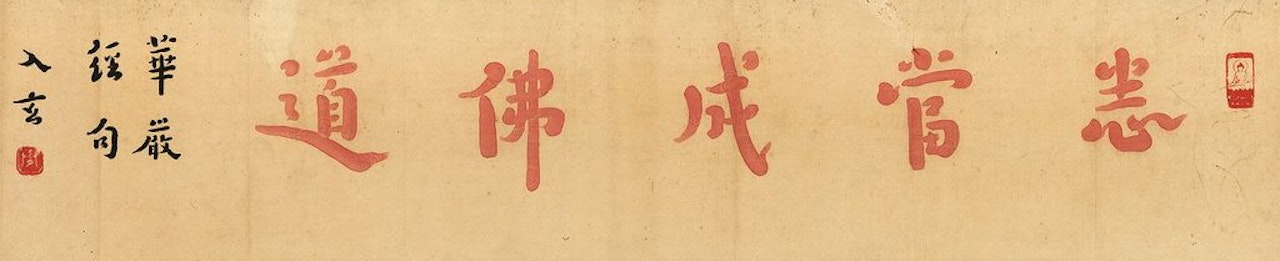 悉當成佛道
華嚴
經句
入玄